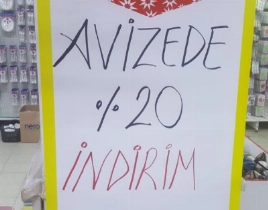 AVİZEDE
% 20
İNDİRİM